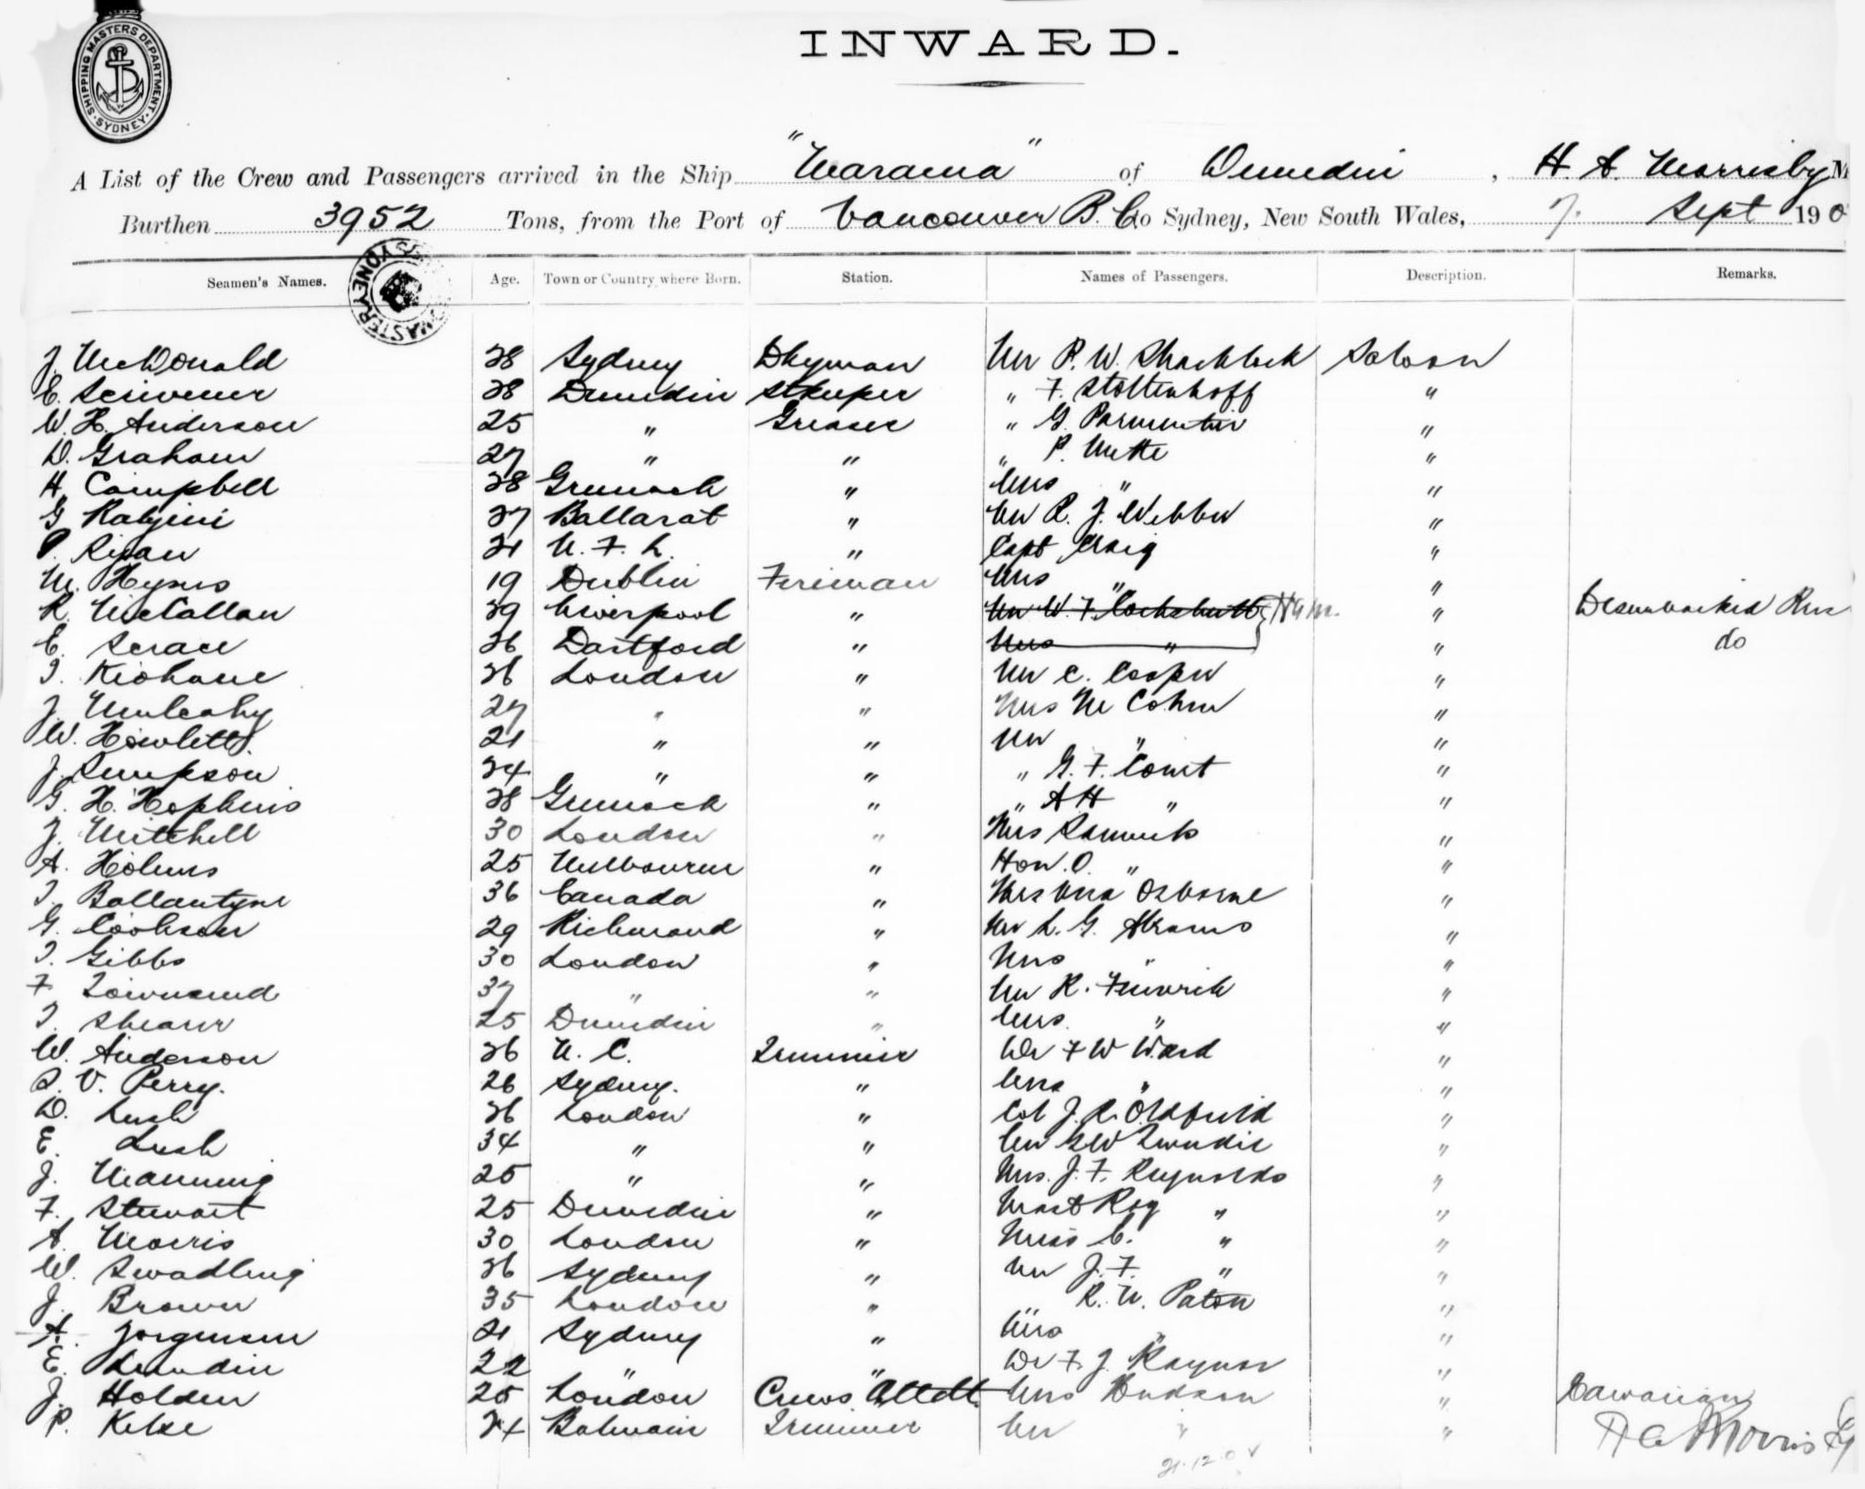 SHIPPING MASTERS DEPARTMENT. SYDNEY.
INWARD.
A List of the Crew and Passengers arrived in the Ship "Marama" of Dunedin, H. A. Morrisby M
Burthen 3952 Tons, from the Port of Vancouver B.C. to Sydney, New South Wales, 7. Sept 190
Seamen's Names. Age. Town or Country where Born. Station. Names of Passengers. Description. Remarks.
J. McDonald 38 Sydney Dkyman Mr P. W. Shacklock Saloon
E. Scrivener 38 Dunedin Stkeeper " F. Stoltenhoff "
W. H. Anderson 25 " Greaser " G. Parmenter "
D. Graham 27 " " " P. Mette "
H. Campbell 38 Greenock " Mrs " "
G 37 Ballarat " Mr R. J. Webber "
P. Ryan 21 N. F. L. " Capt Craig "
M. Hynes 19 Dublin Fireman Mrs " "
R. McCallan 39 Liverpool " Mr W. F. Cockshutt " Disembarked
E. Scrace 36 Dartford " Mrs " " do
T. Keohane 36 London " Mr C. Cooper "
J. Mulcahy 27 " " Mrs M Cohen "
W. Howlett. 21 " " Mr " "
J. Simpson 34 " " " G. F. Court "
G. H. Hopkins 38 Greenock " " A H " "
J. Mitchell 30 London " Mrs Samuels "
A. Holmes 25 Melbourne " Hon. O. " "
T. Ballantyne 36 Canada " Osborne "
G. Cookson 29 Richmond " Mr L. G. Abrams "
T. Gibbs 30 London " Mrs " "
F Townsend 37 " " Mr R. Fenwick "
T. Shearer 25 Dunedin " Mrs. " "
W. Anderson 36 N. C. Trimmer Dr F W Ward "
S. V. Perry. 26 Sydney. " Mrs " "
D. Lush 36 London " Col J. R. Oldfield "
E. Lush 34 " " Mr G W "
J. Manning 25 " " Mrs. J. F. Reynolds "
F. Stewart 25 Dunedin " Mast Reg " "
A. Morris 30 London " Miss C. " "
W. Swadling 36 Sydney " Mr J. F. " "
J. Brown 35 London " " R. N. Paton "
A. Jorgensen 21 Sydney " Mrs " "
E. Lundin 22 " " Dr F. J. Raynor "
J. Holden 25 London Crews Attdt. Mrs Hudson "
P. Kelse 24 Balmain Trimmer Mr " "